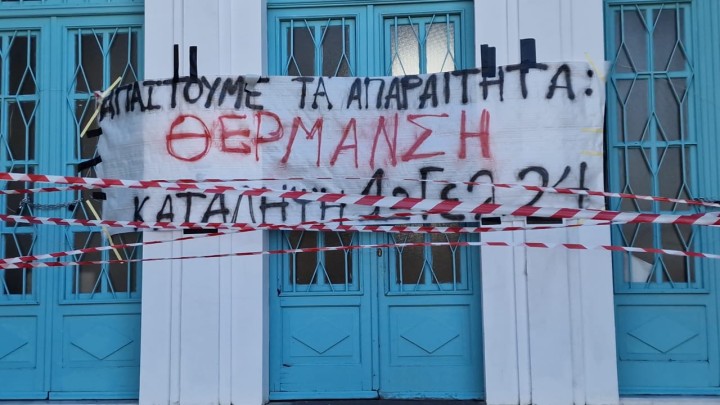 ΑΠΑΙΤΟΥΜΕ ΤΑ ΑΠΑΡΑΙΤΗΤΑ:
ΘΕΡΜΑΝΣΗ
ΚΑΤΑΛΗΨΗ 1ο ΓΕΛ 24